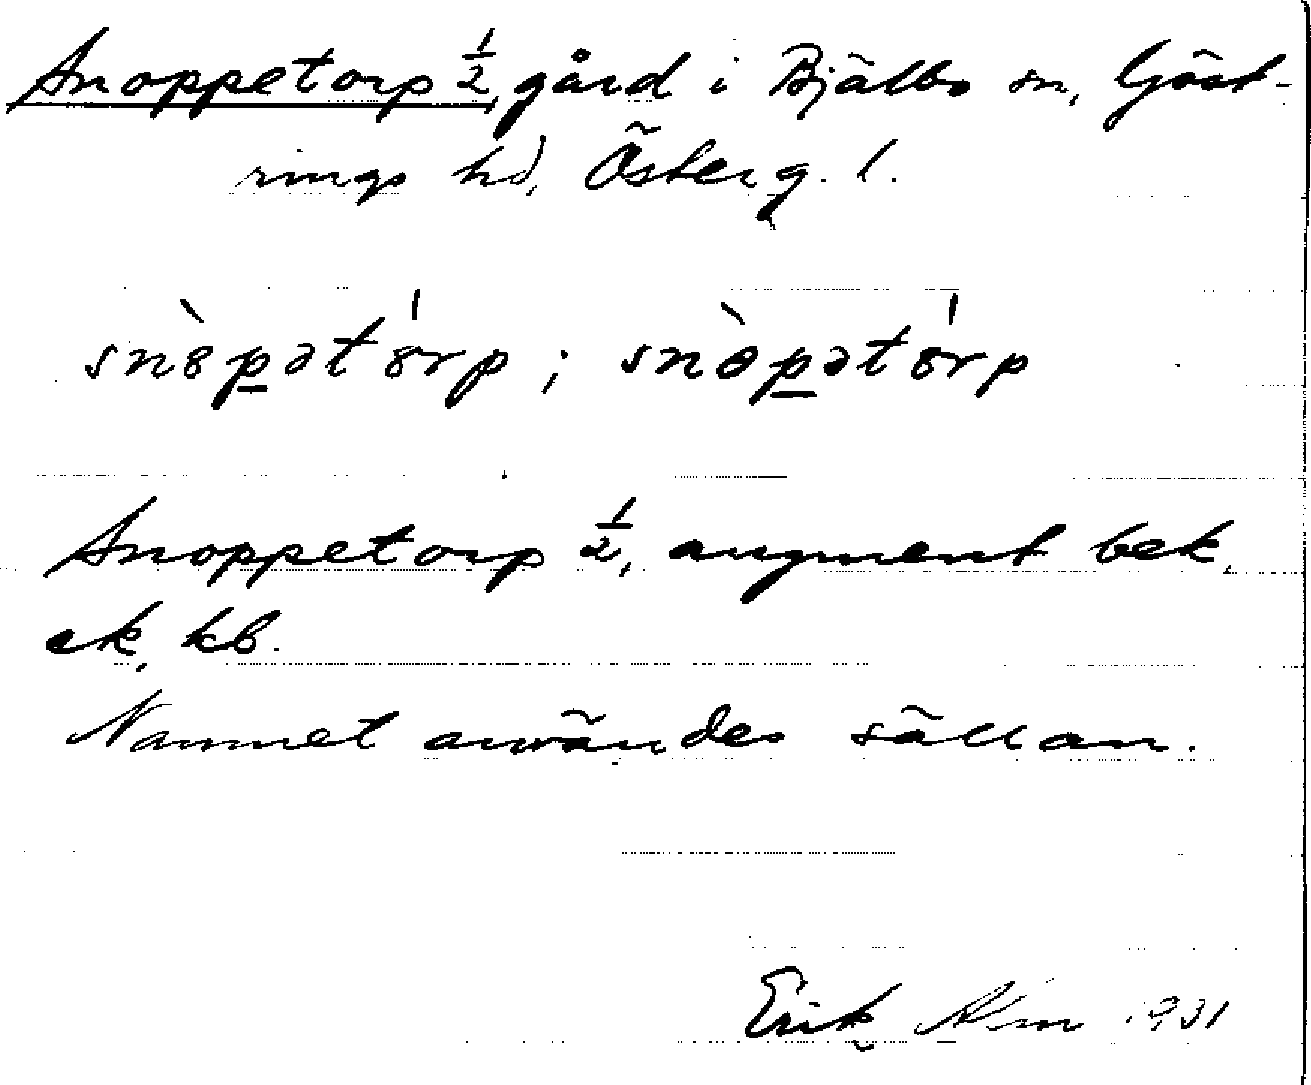 Snoppetorp 1/2, gård i Bjälbo sn, Göst-
rings hd, Österg. l.
snòpətórp ; snòpətórp
Snoppetorp 1/2, augment bek.
ek, kb.
Namnet användes sällan.
Erik Alm 1931